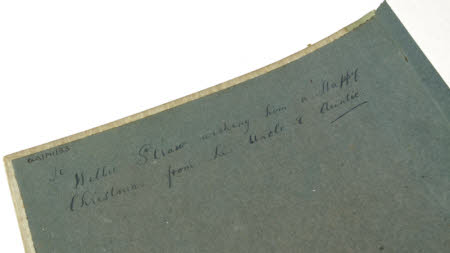 To
Willie Straw wishing him a Happy
Christmas from his Uncle & Auntie